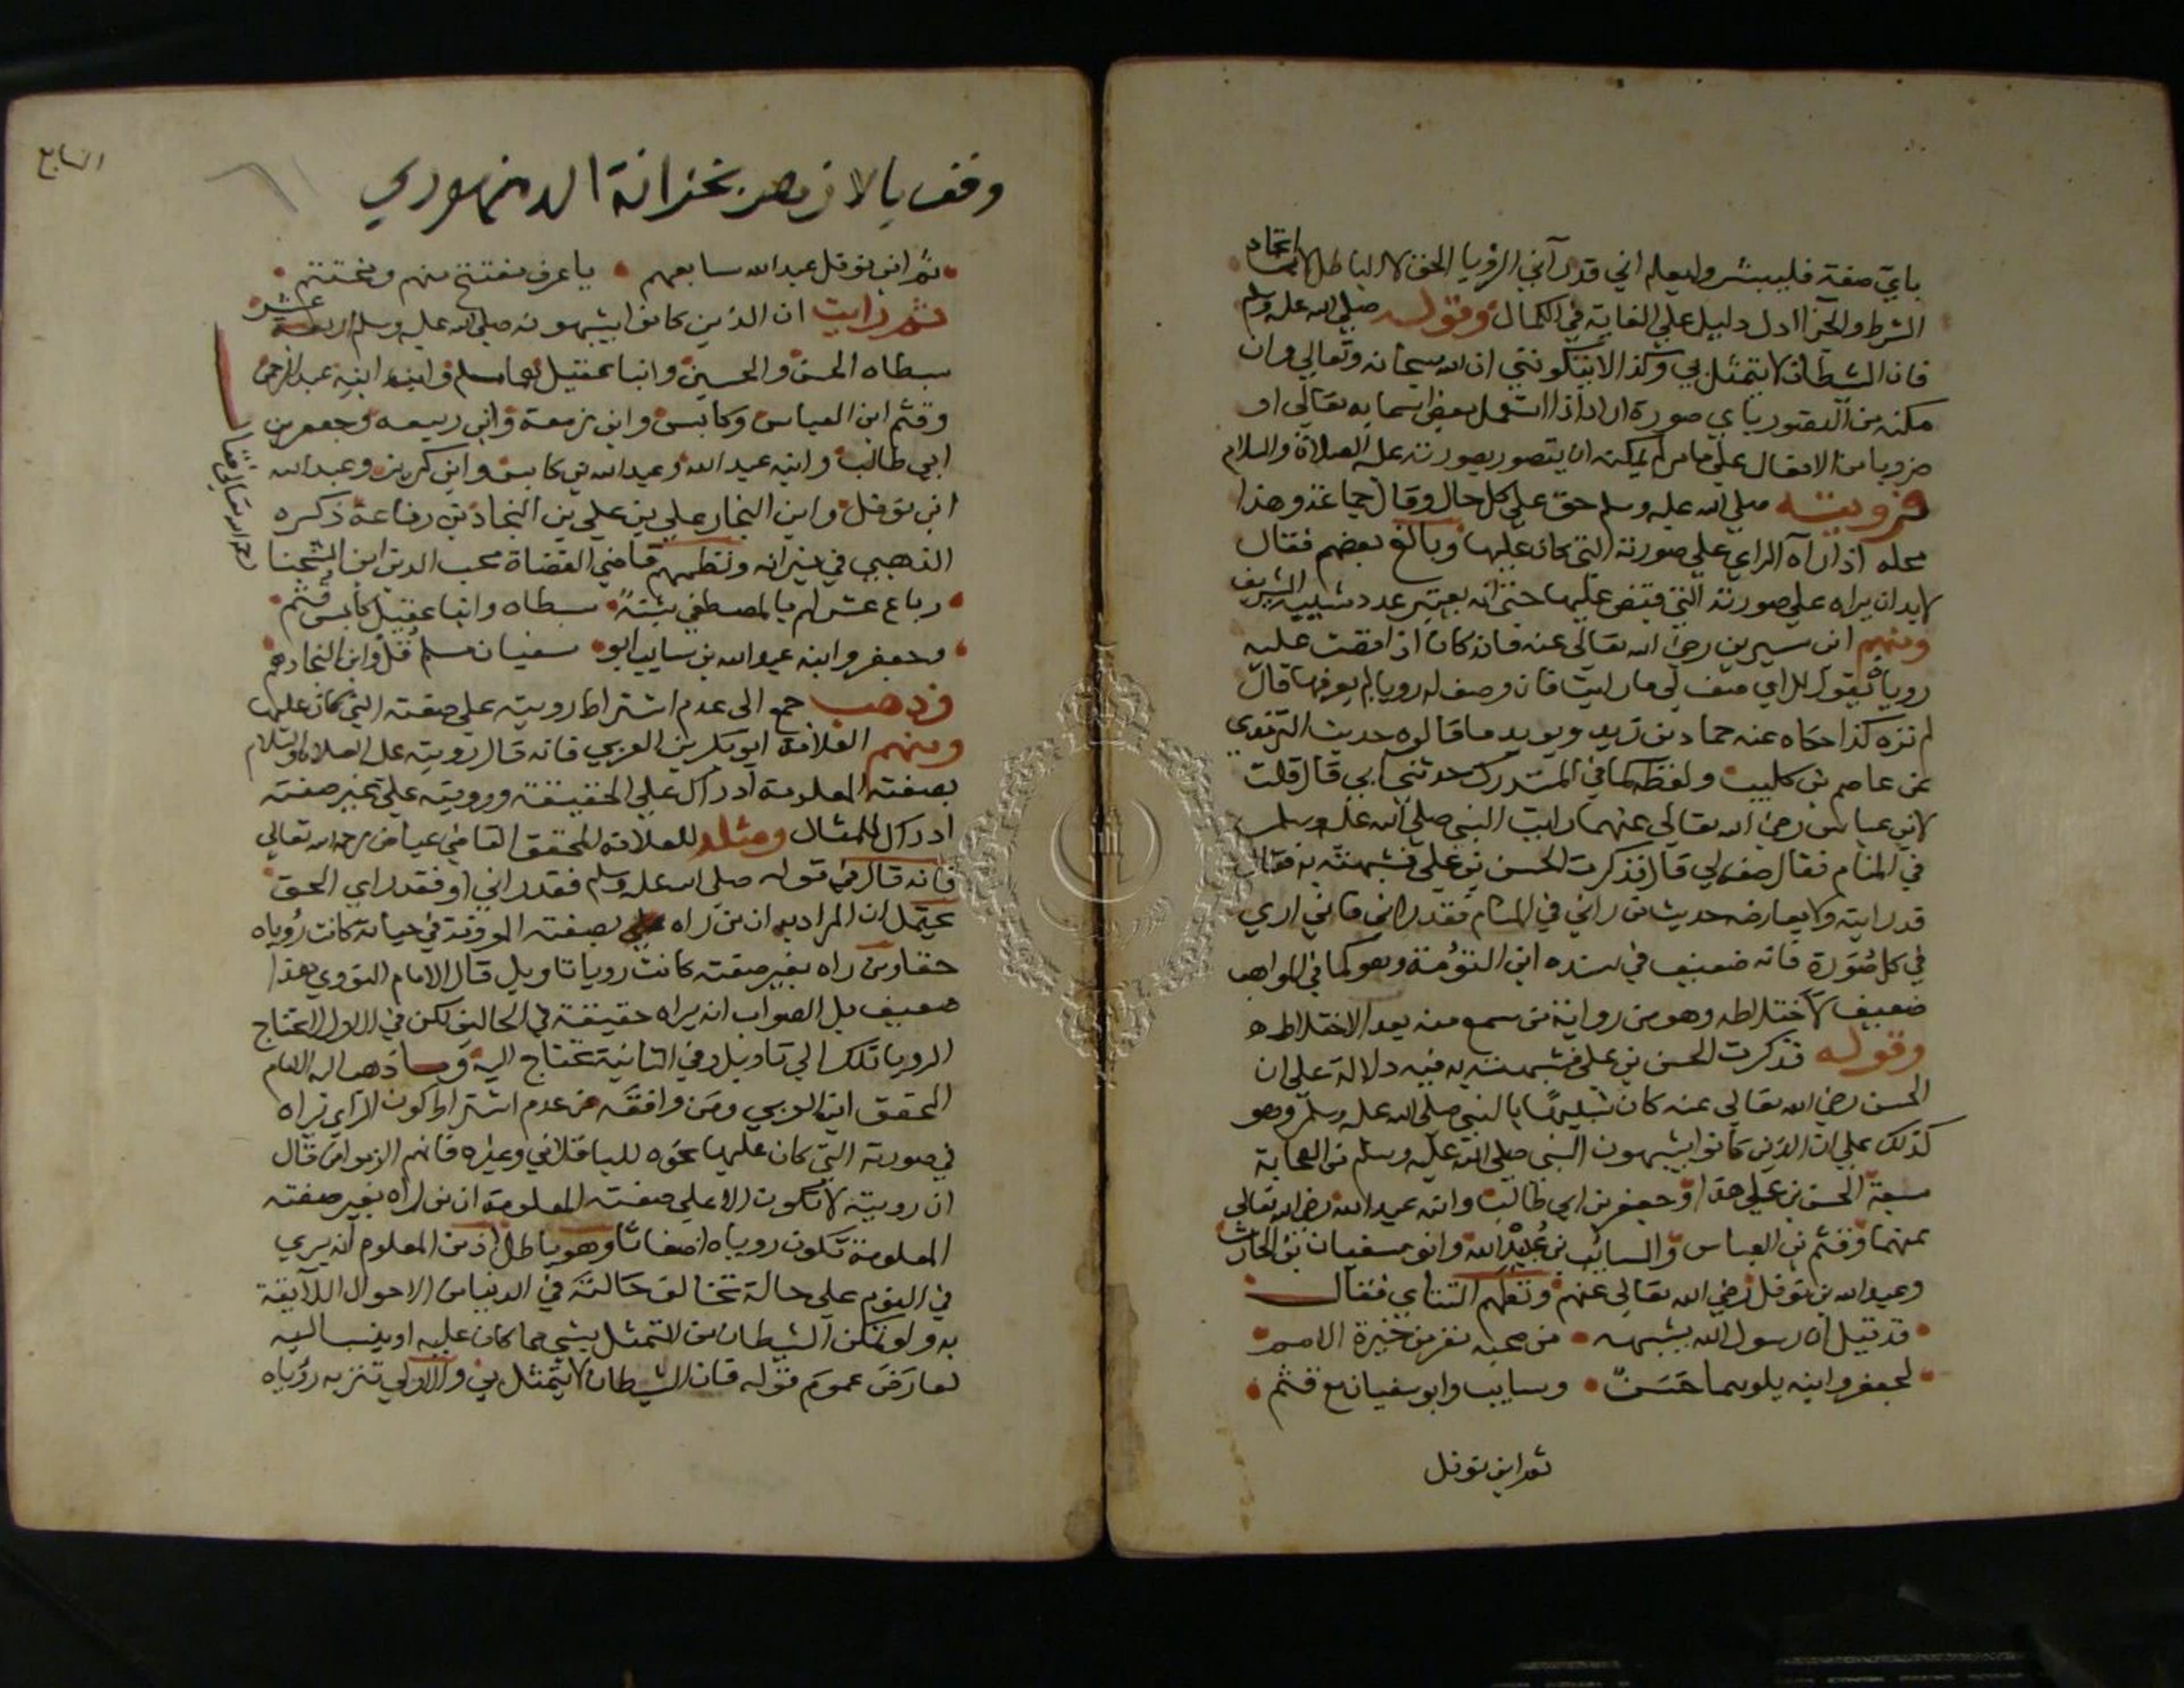 باي صفة فليبشر وليعلم اني قد رآني الرؤيا الحق لا الباطل لاتحاد
الشرط والجزا ادل دليل علي الغاية في الكمال وقوله صلي الله عليه وسلم
فان الشيطان لا يتمثل بي وكذا لا يتكونني ان الله سبحانه وتعالي وان
مكنه من التصور باي صورة اراد اذا استعمل بعض اسمايه تعالي او
ضروبا من الافعال علي ما مر لم يمكنه ان يتصور بصورته عليه الصلاة والسلام
فرويته صلي الله عليه وسلم حق علي كل حال وقال جماعة وهذا
محله اذا رآه الراي علي صورته التي كان عليها وبالغ بعضهم فقال
لا بد ان يراه علي صورته التي قبض عليها حتي انه يعتبر عدد شيبه الشريف
ومنهم ابن سيرين رضي الله تعالي عنه فانه كان اذا قصت عليه
رويا فيقول للراي صف لي ما رايت فان وصف له رويا لم يعرفها قال
لم تره كذا حكاه عنه حماد بن زيد ويويد ما قالوه حديث الترمذي
عن عاصم بن كليب ولفظه كما في المستدرك حدثني ابي قال قلت
لابن عباس رضي الله تعالي عنهما رايت النبي صلي الله عليه وسلم
في المنام فقال صفه لي قال فذكرت الحسن بن علي فشبهته به فقال
قد رايته ولا يعارضه حديث من راني في المنام فقد راني فاني اري
في كل صورة فانه ضعيف في سنده ابن التؤمة وهو كما في المواهب
ضعيف لاختلاطه وهو من رواية من سمع منه بعد الاختلاط ه
وقوله فذكرت الحسن بن علي فشبهته به فيه دلالة علي ان
الحسن رضي الله تعالي عنه كان شبيها بالنبي صلي الله عليه وسلم وهو
كذلك علي ان الذين كانوا يشبهون النبي صلي الله عليه وسلم من الصحابة
سبعة الحسن بن علي هذا وجعفر بن ابي طالب وابنه عبد الله رضي الله تعالي
عنهما وقثم بن العباس والسائب بن عبيد الله وابو سفيان بن الحارث
وعبد الله بن نوفل رضي الله تعالي عنهم ونظمهم التتاي فقال
قد قيل ان رسول الله يشبهه من صحبه نفر من خيرة الامم
لجعفر وابنه يلوهما حسن وسايب وابو سفيان مع قثم
ثم ابن نوفل
السابع
وقف بالازهر بخزانة الدمنهوري
ثم ابن نوفل عبد الله سابعهم يا عرف مفتتح منهم ومختتم
ثم رايت ان الذين كانوا يشبهونه صلي الله عليه وسلم اربعة عشر
سبطاه الحسن والحسين وابنا عقيل مسلم وابنه عبد الرحمن
وقثم ابن العباس وكابس وابن زمعة وابن ربيعه وجعفر بن
ابي طالب وابنه عبد الله وعبد الله بن كابس وابن كريز وعبد الله
ابن نوفل وابن النجار علي بن علي بن النجاد بن رفاعة ذكره
الذهبي في ميزانه ونظمهم قاضي القضاة محب الدين ابن الشحنا
رحمه الله تعالي فقال
رباع عشر لهم بالمصطفي سبطاه وابنا عقيل كابس قثم
وجعفر وابنه عبد الله بن سايب ابو سفيان مسلم وابن النجاد هم
وذهب جمع الي عدم اشتراط رويته علي صفته التي كان عليها
ومنهم العلامة ابو بكر بن العربي فانه قال رويته عليه الصلاة والسلام
بصفته المعلومة ادراك علي الحقيقة ورويته علي غير صفته
ادراك للمثال ومثله للعلامة المحقق القاضي عياض رحمه الله تعالي
فانه قال في قوله صلي الله عليه وسلم فقد راني او فقد راي الحق
يحتمل ان المراد به ان من راه بصفته المعروفة في حياته كانت رؤياه
حقا ومن راه بغير صفته كانت رويا تاويل قال الامام النووي هذا
ضعيف بل الصواب انه يراه حقيقة في الحالين لكن في الاولي لا تحتاج
الرويا تلك الي تاويل وفي الثانية تحتاج اليه وما ذهب اليه الامام
المحقق ابن العربي ومن وافقه من عدم اشتراط كون الراي يراه
في صورته التي كان عليها نحوه للباقلاني وغيره فانهم الزموا من قال
ان رويته لا تكون الا علي صفته المعلومة ان من راه بغير صفته
المعلومة تكون روياه اضغاثا وهو باطل اذ من المعلوم انه يري
في النوم علي حالة تخالف حالته في الدنيا من الاحوال اللآيقة
به ولو تمكن الشيطان من التمثل بشي مما كان عليه او ينسب اليه
لعارض عموم قوله فان الشيطان لا يتمثل بي والاولي تنزيه رؤياه